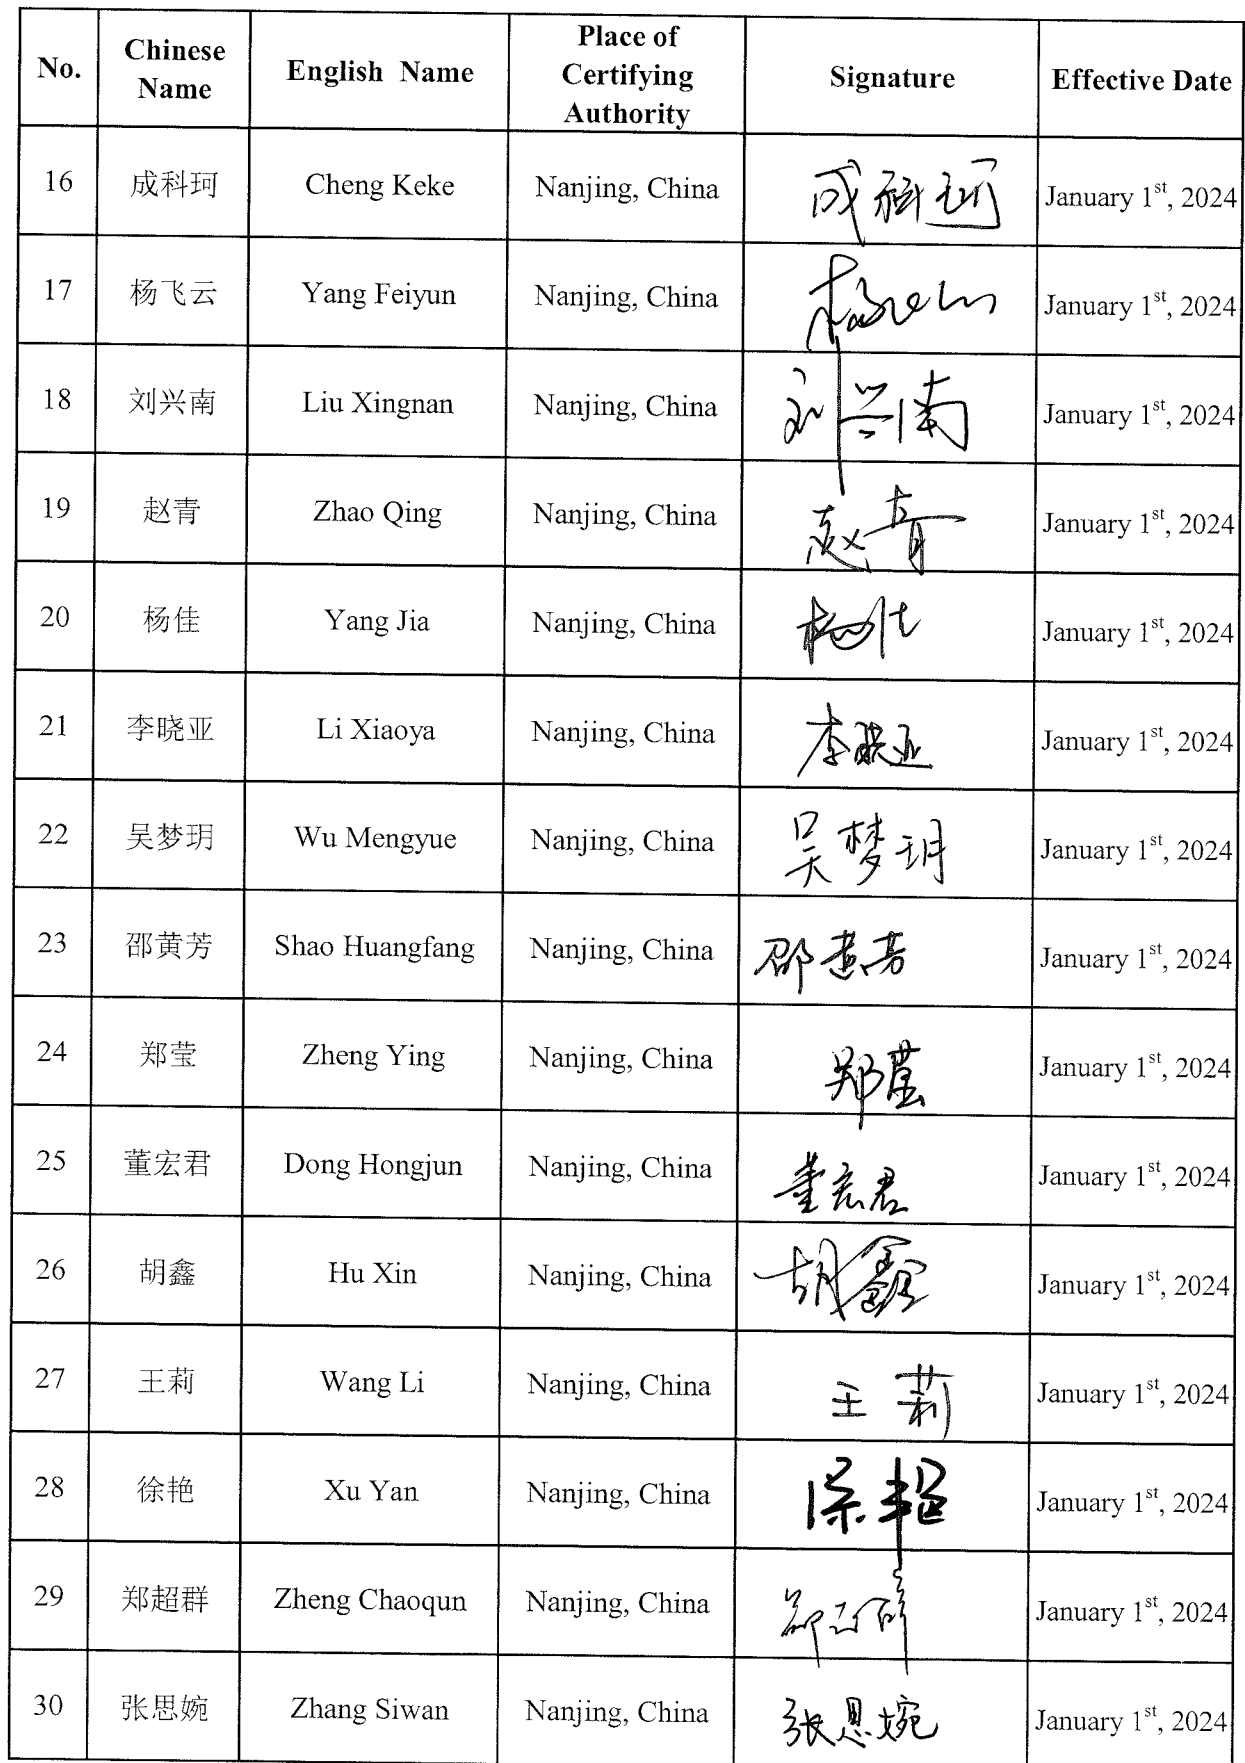 No. Chinese Name English Name Place of Certifying Authority Signature Effective Date
16 成科珂 Cheng Keke Nanjing, China 成科珂 January 1st, 2024
17 杨飞云 Yang Feiyun Nanjing, China January 1st, 2024
18 刘兴南 Liu Xingnan Nanjing, China 刘兴南 January 1st, 2024
19 赵青 Zhao Qing Nanjing, China 赵青 January 1st, 2024
20 杨佳 Yang Jia Nanjing, China 杨佳 January 1st, 2024
21 李晓亚 Li Xiaoya Nanjing, China 李晓亚 January 1st, 2024
22 吴梦玥 Wu Mengyue Nanjing, China 吴梦玥 January 1st, 2024
23 邵黄芳 Shao Huangfang Nanjing, China 邵黄芳 January 1st, 2024
24 郑莹 Zheng Ying Nanjing, China 郑莹 January 1st, 2024
25 董宏君 Dong Hongjun Nanjing, China 董宏君 January 1st, 2024
26 胡鑫 Hu Xin Nanjing, China 胡鑫 January 1st, 2024
27 王莉 Wang Li Nanjing, China 王莉 January 1st, 2024
28 徐艳 Xu Yan Nanjing, China 徐艳 January 1st, 2024
29 郑超群 Zheng Chaoqun Nanjing, China January 1st, 2024
30 张思婉 Zhang Siwan Nanjing, China 张思婉 January 1st, 2024